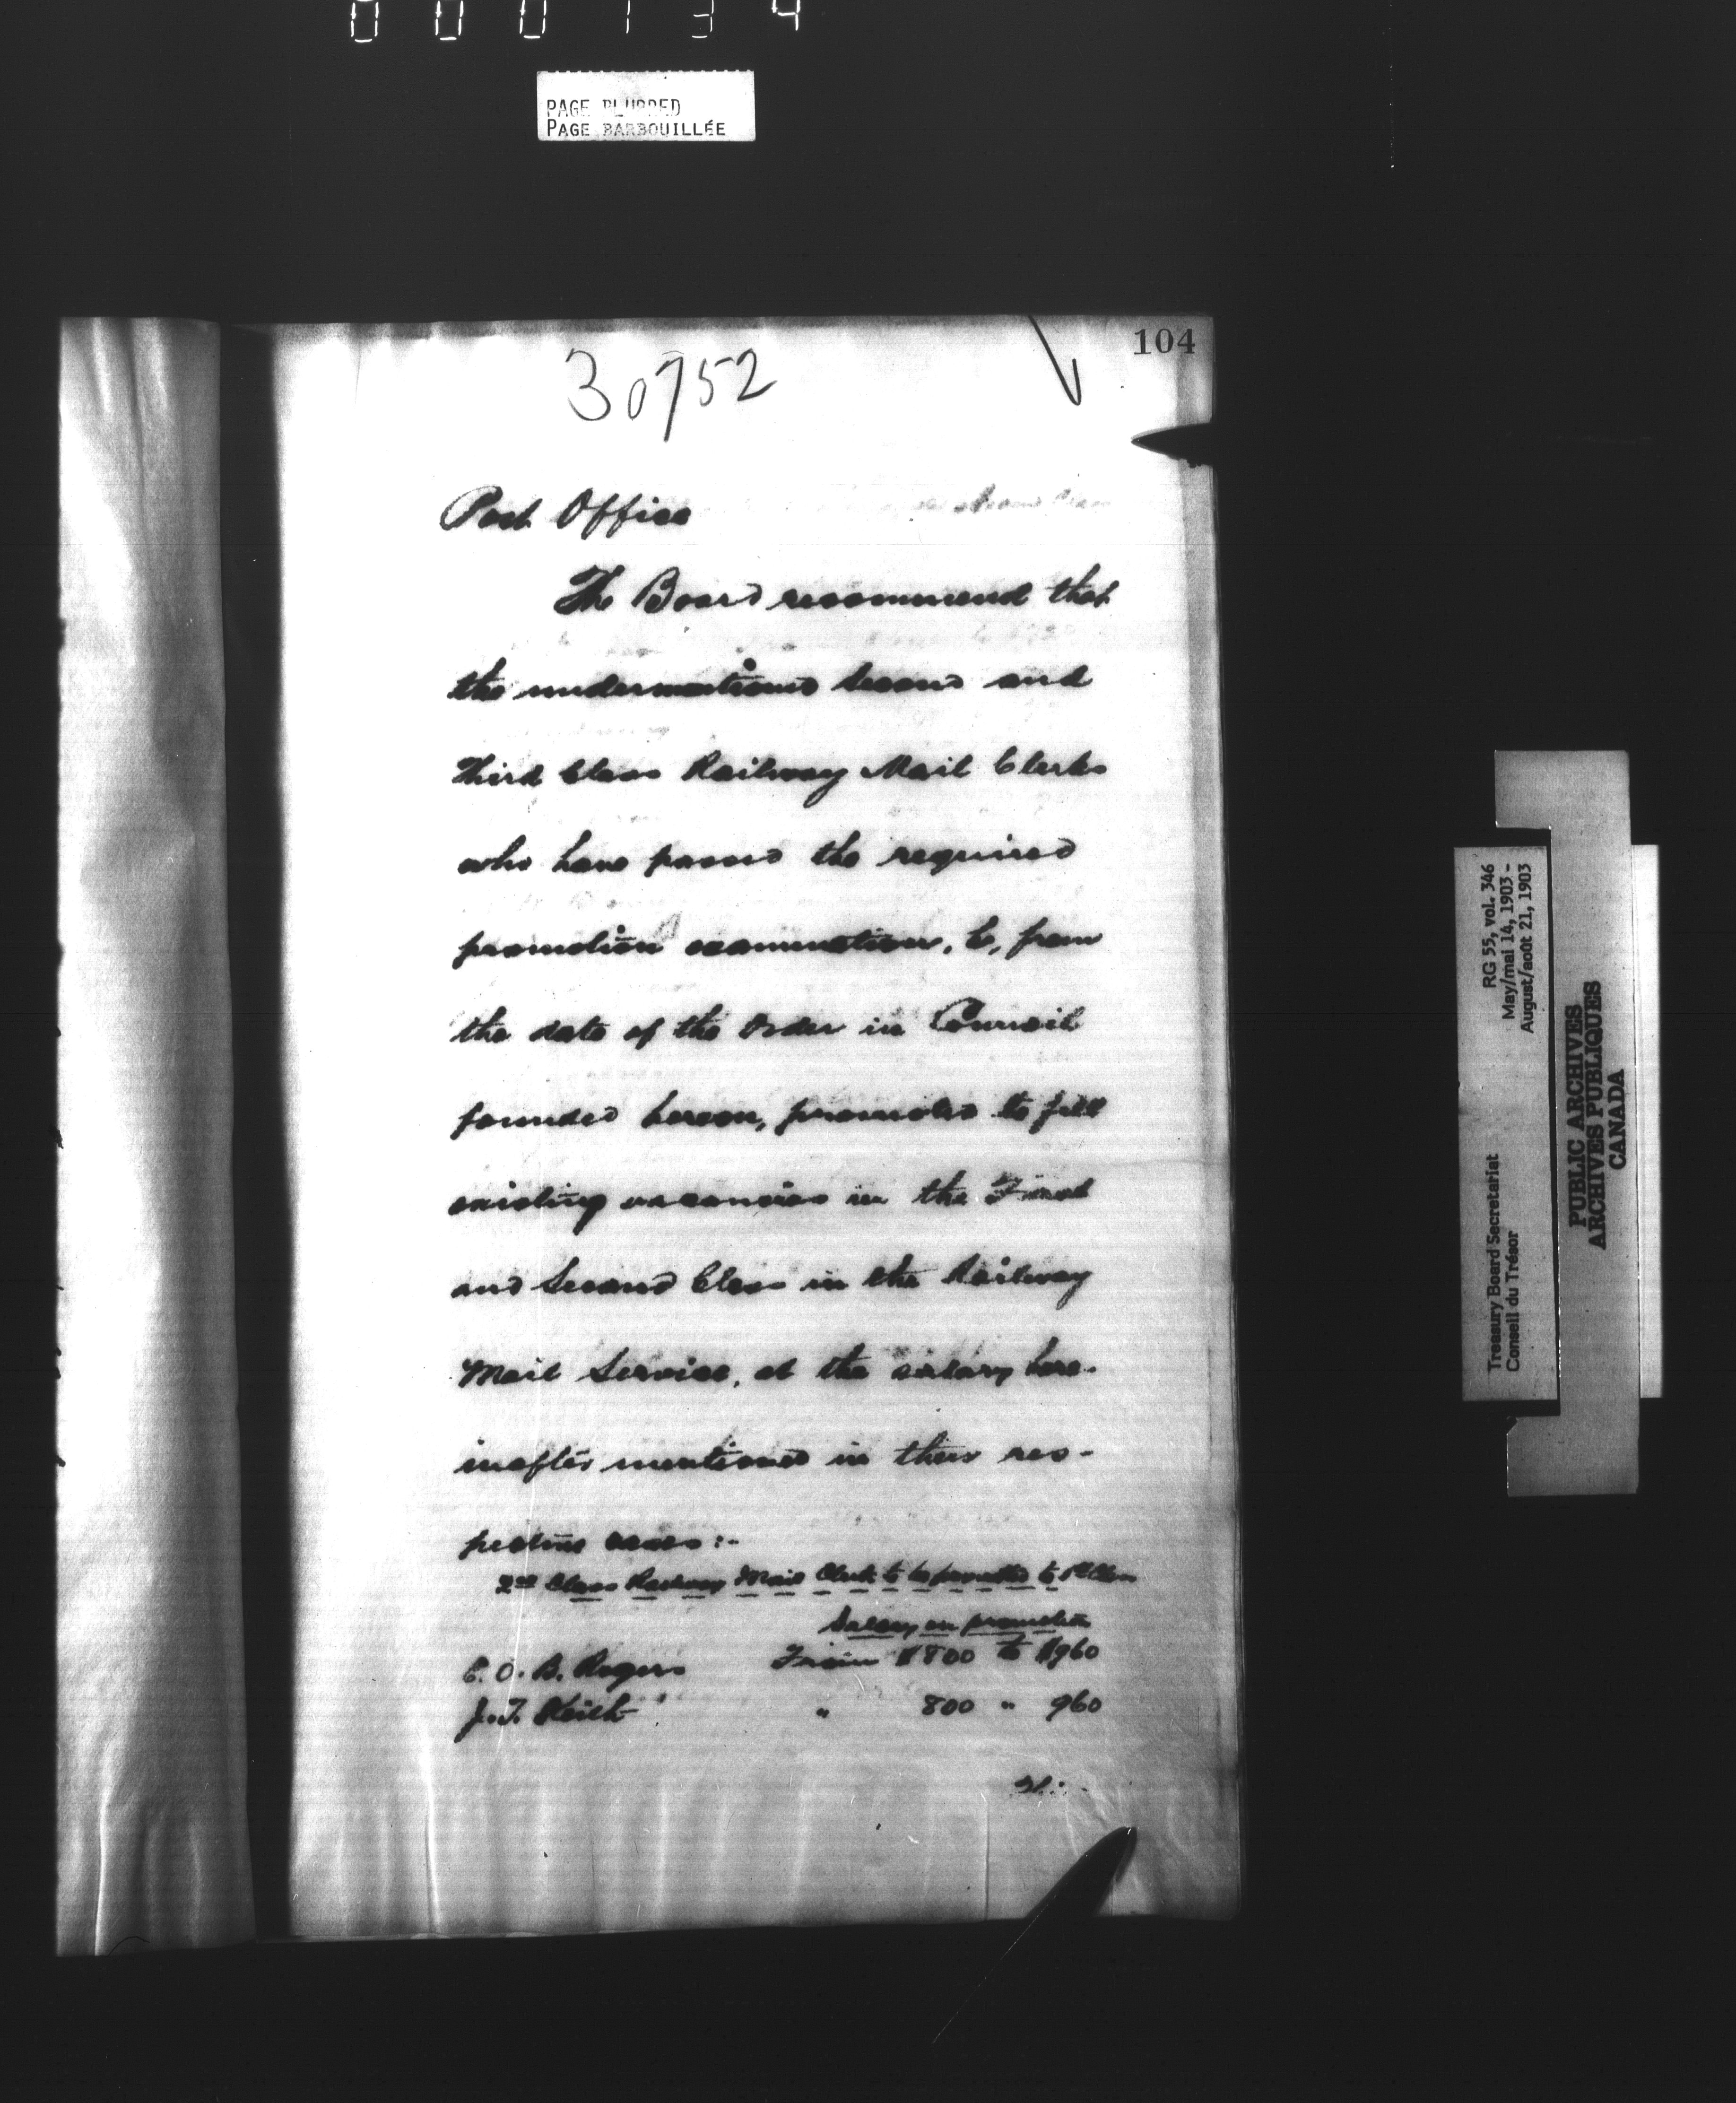 000134
PAGE BLURRED
PAGE BARBOUILLÉE
104
30752
Post Office
The Board recommend that
the undermentioned Second and
Third Class Railway Mail Clerks
who have passed the required
promotion examination, be, from
the date of the Order in Council
founded hereon, promoted to fill
existing vacancies in the First
and Second Class in the Railway
Mail Service, at the salary here-
inafter mentioned in their res-
pective cases:-
2nd Class Railway Mail Clerks to be promoted to 1st Class
Salary on promotion
E. O. B. Rogers From $800 to $960
J. T. Keith " 800 " 960
RG 55, vol. 346
May/mai 14, 1903 -
August/août 21, 1903
Treasury Board Secretariat
Conseil du Trésor
PUBLIC ARCHIVES
ARCHIVES PUBLIQUES
CANADA